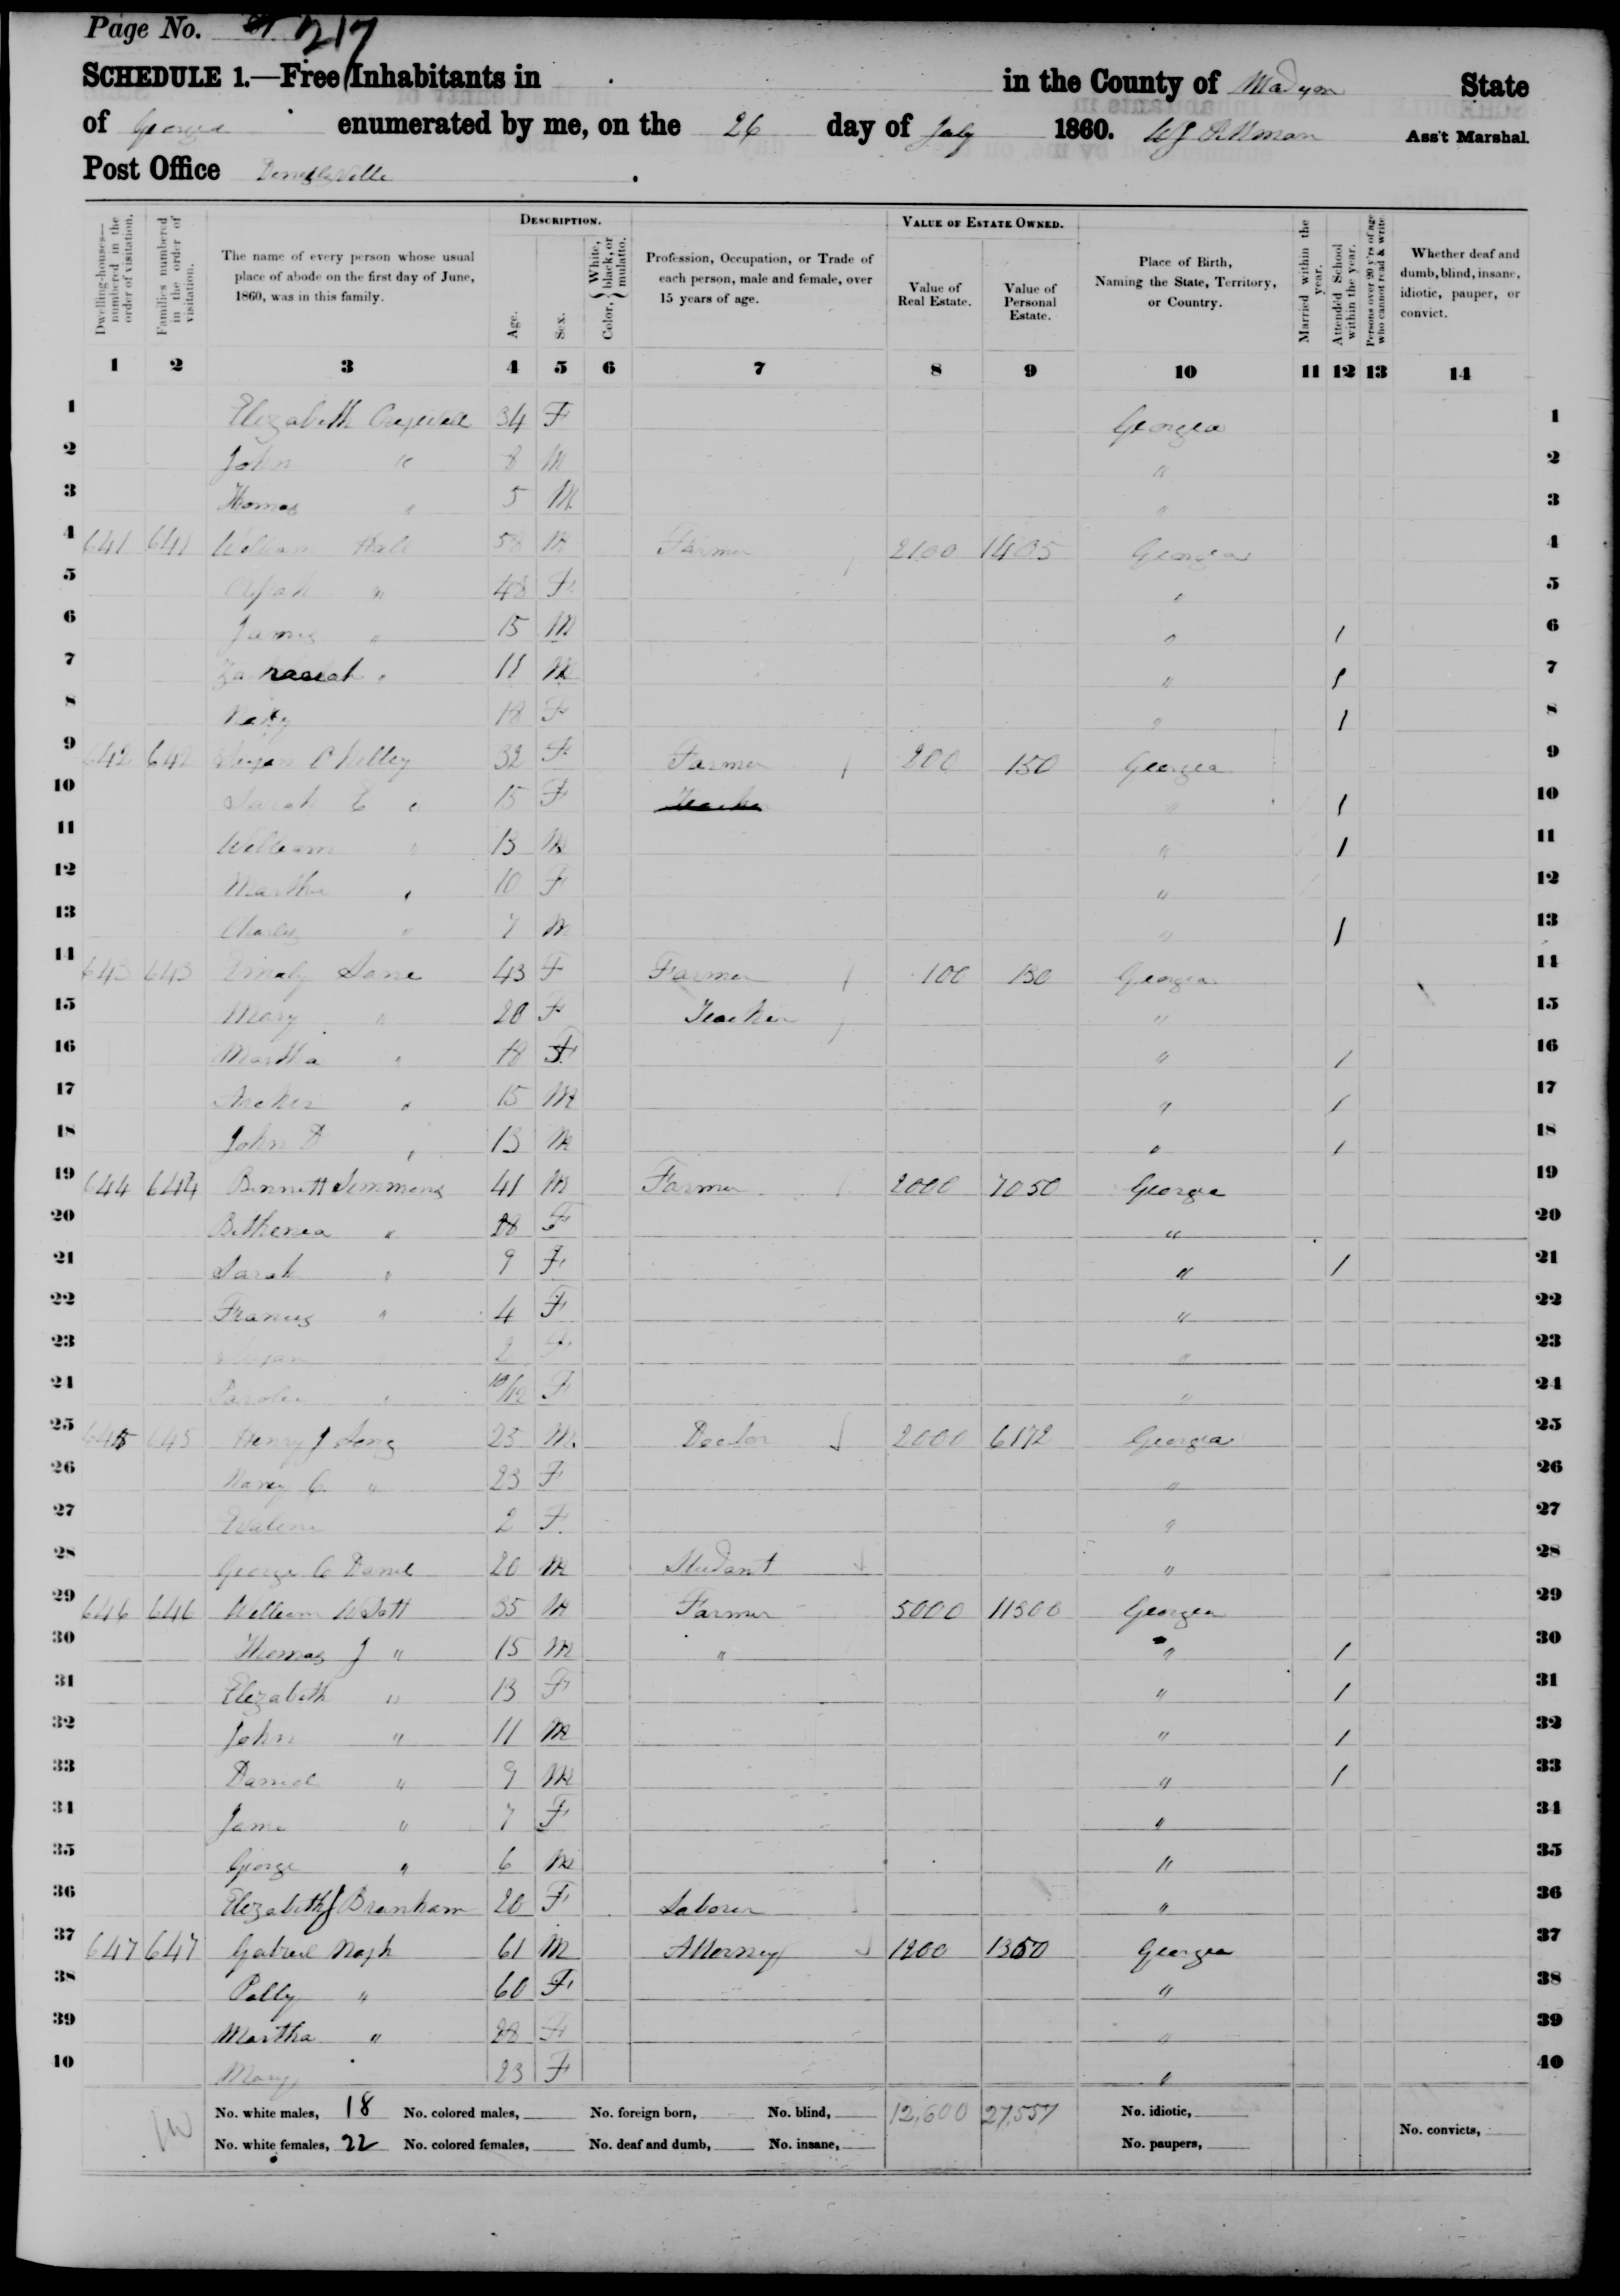 Page No. 217
SCHEDULE 1.—Free Inhabitants in in the County of Madison State
of Georgia enumerated by me, on the 26 day of July 1860. Ass't Marshal.
Post Office Danielsville
Dwelling-houses—numbered in the order of visitation.
Families numbered in the order of visitation.
The name of every person whose usual place of abode on the first day of June, 1860, was in this family.
DESCRIPTION.
Age.
Sex.
Color, { White, black, or mulatto.
Profession, Occupation, or Trade of each person, male and female, over 15 years of age.
VALUE OF ESTATE OWNED.
Value of Real Estate.
Value of Personal Estate.
Place of Birth, Naming the State, Territory, or Country.
Married within the year.
Attended School within the year.
Persons over 20 y'rs of age who cannot read & write.
Whether deaf and dumb, blind, insane, idiotic, pauper, or convict.
1 2 3 4 5 6 7 8 9 10 11 12 13 14
1 Elizabeth 34 F Georgia 1
2 John " 8 M " 2
3 Thomas " 5 M " 3
4 641 641 William 58 M Farmer 2100 1405 Georgia 4
5 " 48 F " 5
6 James " 15 M " / 6
7 " 11 M " / 7
8 18 F " / 8
9 642 642 32 F Farmer 200 150 Georgia 9
10 Sarah E " 15 F Teacher " / 10
11 William " 13 M " / 11
12 Martha " 10 F " 12
13 Charles " 7 M " / 13
14 643 643 43 F Farmer 100 130 Georgia 14
15 Mary " 20 F Teacher " 15
16 Martha " 18 F " / 16
17 Archer " 15 M " / 17
18 John D " 13 M " / 18
19 644 644 Bennett Semmons 41 M Farmer 2000 7050 Georgia 19
20 Bethenea " 28 F " 20
21 Sarah " 9 F " / 21
22 Francis " 4 F " 22
23 Susan 2 F " 23
24 " 10/12 F " 24
25 645 645 Henry J Long 25 M. Doctor 2000 6172 Georgia 25
26 Nancy C " 23 F " 26
27 2 F. " 27
28 George C Daniel 20 M Student " 28
29 646 646 William W Scott 35 M Farmer 5000 11300 Georgia 29
30 Thomas J " 15 M " " / 30
31 Elizabeth " 13 F " / 31
32 John " 11 M " / 32
33 Daniel " 9 M " / 33
34 Jane " 7 F " 34
35 George " 6 M " 35
36 Elizabeth J Branham 20 F Laborer " 36
37 647 647 Gabriel Nash 61 M Attorney 1200 1350 Georgia 37
38 Polly " 60 F " 38
39 Martha " 28 F " 39
40 Mary 23 F " 40
No. white males, 18 No. colored males, No. foreign born, No. blind, 12,600 27,557 No. idiotic,
No. white females, 22 No. colored females, No. deaf and dumb, No. insane, No. paupers, No. convicts,